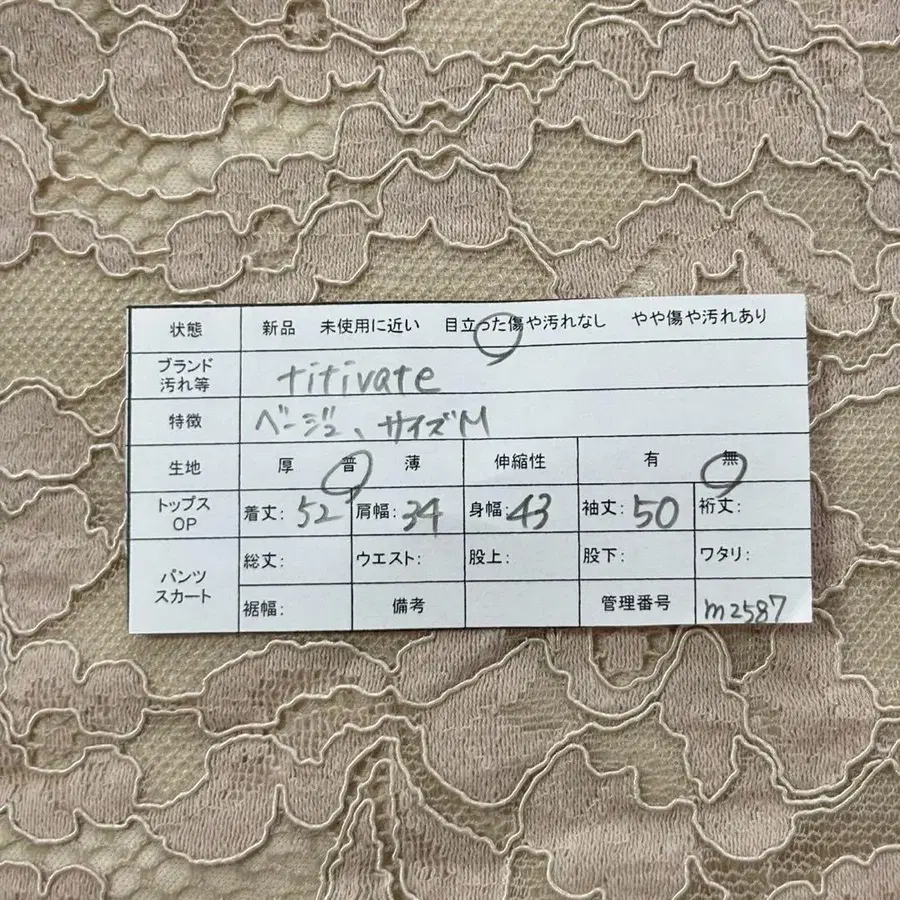 状態 新品 未使用に近い 目立った傷や汚れなし やや傷や汚れあり
ブランド
汚れ等 titivate
特徴 ベージュ、サイズM
生地 厚 普 薄 伸縮性 有 無
トップス
OP 着丈: 52 肩幅: 34 身幅: 43 袖丈: 50 裄丈:
パンツ
スカート 総丈: ウエスト: 股上: 股下: ワタリ:
裾幅: 備考 管理番号 m2587